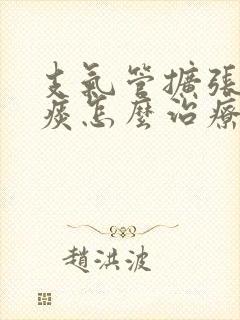 支氣管擴張
痰怎麼治療
趙洪波